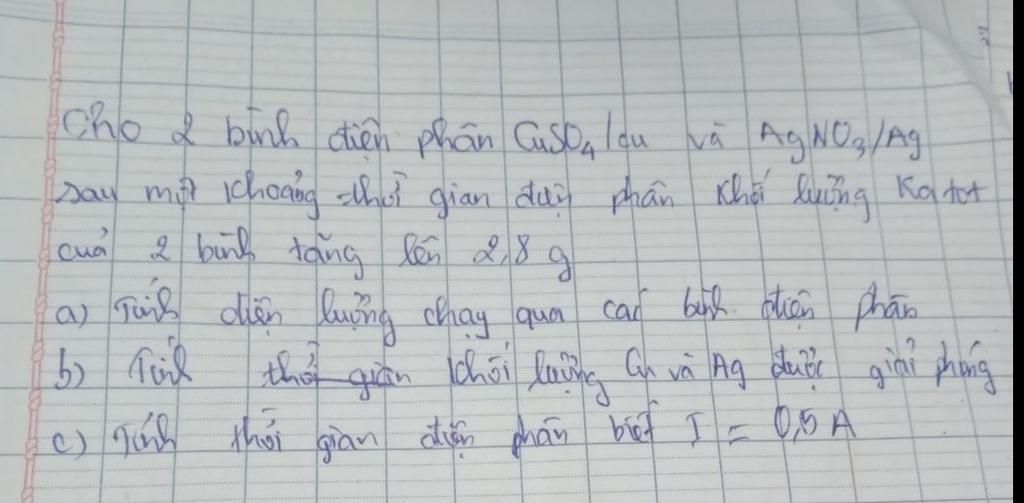 Cho 2 bình điện phân CuSO4/Cu và AgNO3/Ag
sau một khoảng thời gian điện phân khối lượng Katot
của 2 bình tăng lên 2,8 g
a) Tính điện lượng chạy qua các bình điện phân
b) Tính thời gian khối lượng Cu và Ag được giải phóng
c) Tính thời gian điện phân biết I = 0,5 A